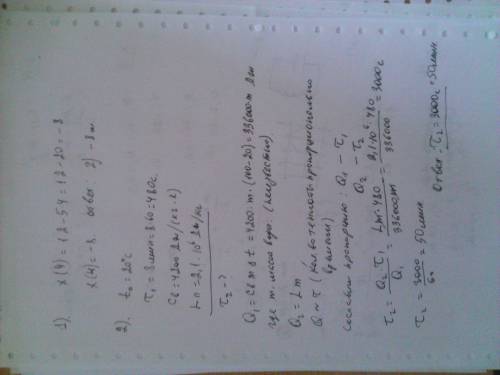 1). x(4) = 12-5·4 = 12-20 = -8
x(4) = -8. ответ: 2) -8 м.
2). t₀ = 20°C
τ₁ = 8 мин = 8·60 = 480 с.
Cв = 4200 Дж/(кг·°С)
Lп = 2,1·10⁶ Дж/кг
τ₂ - ?
Q₁ = Cв m Δt = 4200·m·(100-20) = 336000 m Дж
где m. масса воды. (неизвестно)
Q₂ = Lm
Q ~ τ (кол-во теплоты пропорционально
времени)
составим пропорцию: Q₁ - τ₁
Q₂ - τ₂
τ₂ = Q₂·τ₁/Q₁ = Lm·480/336000m = 2,1·10⁶·480/336000 = 3000 с
τ₂ = 3000/60 = 50 мин
Ответ: τ₂ = 3000 с = 50 мин